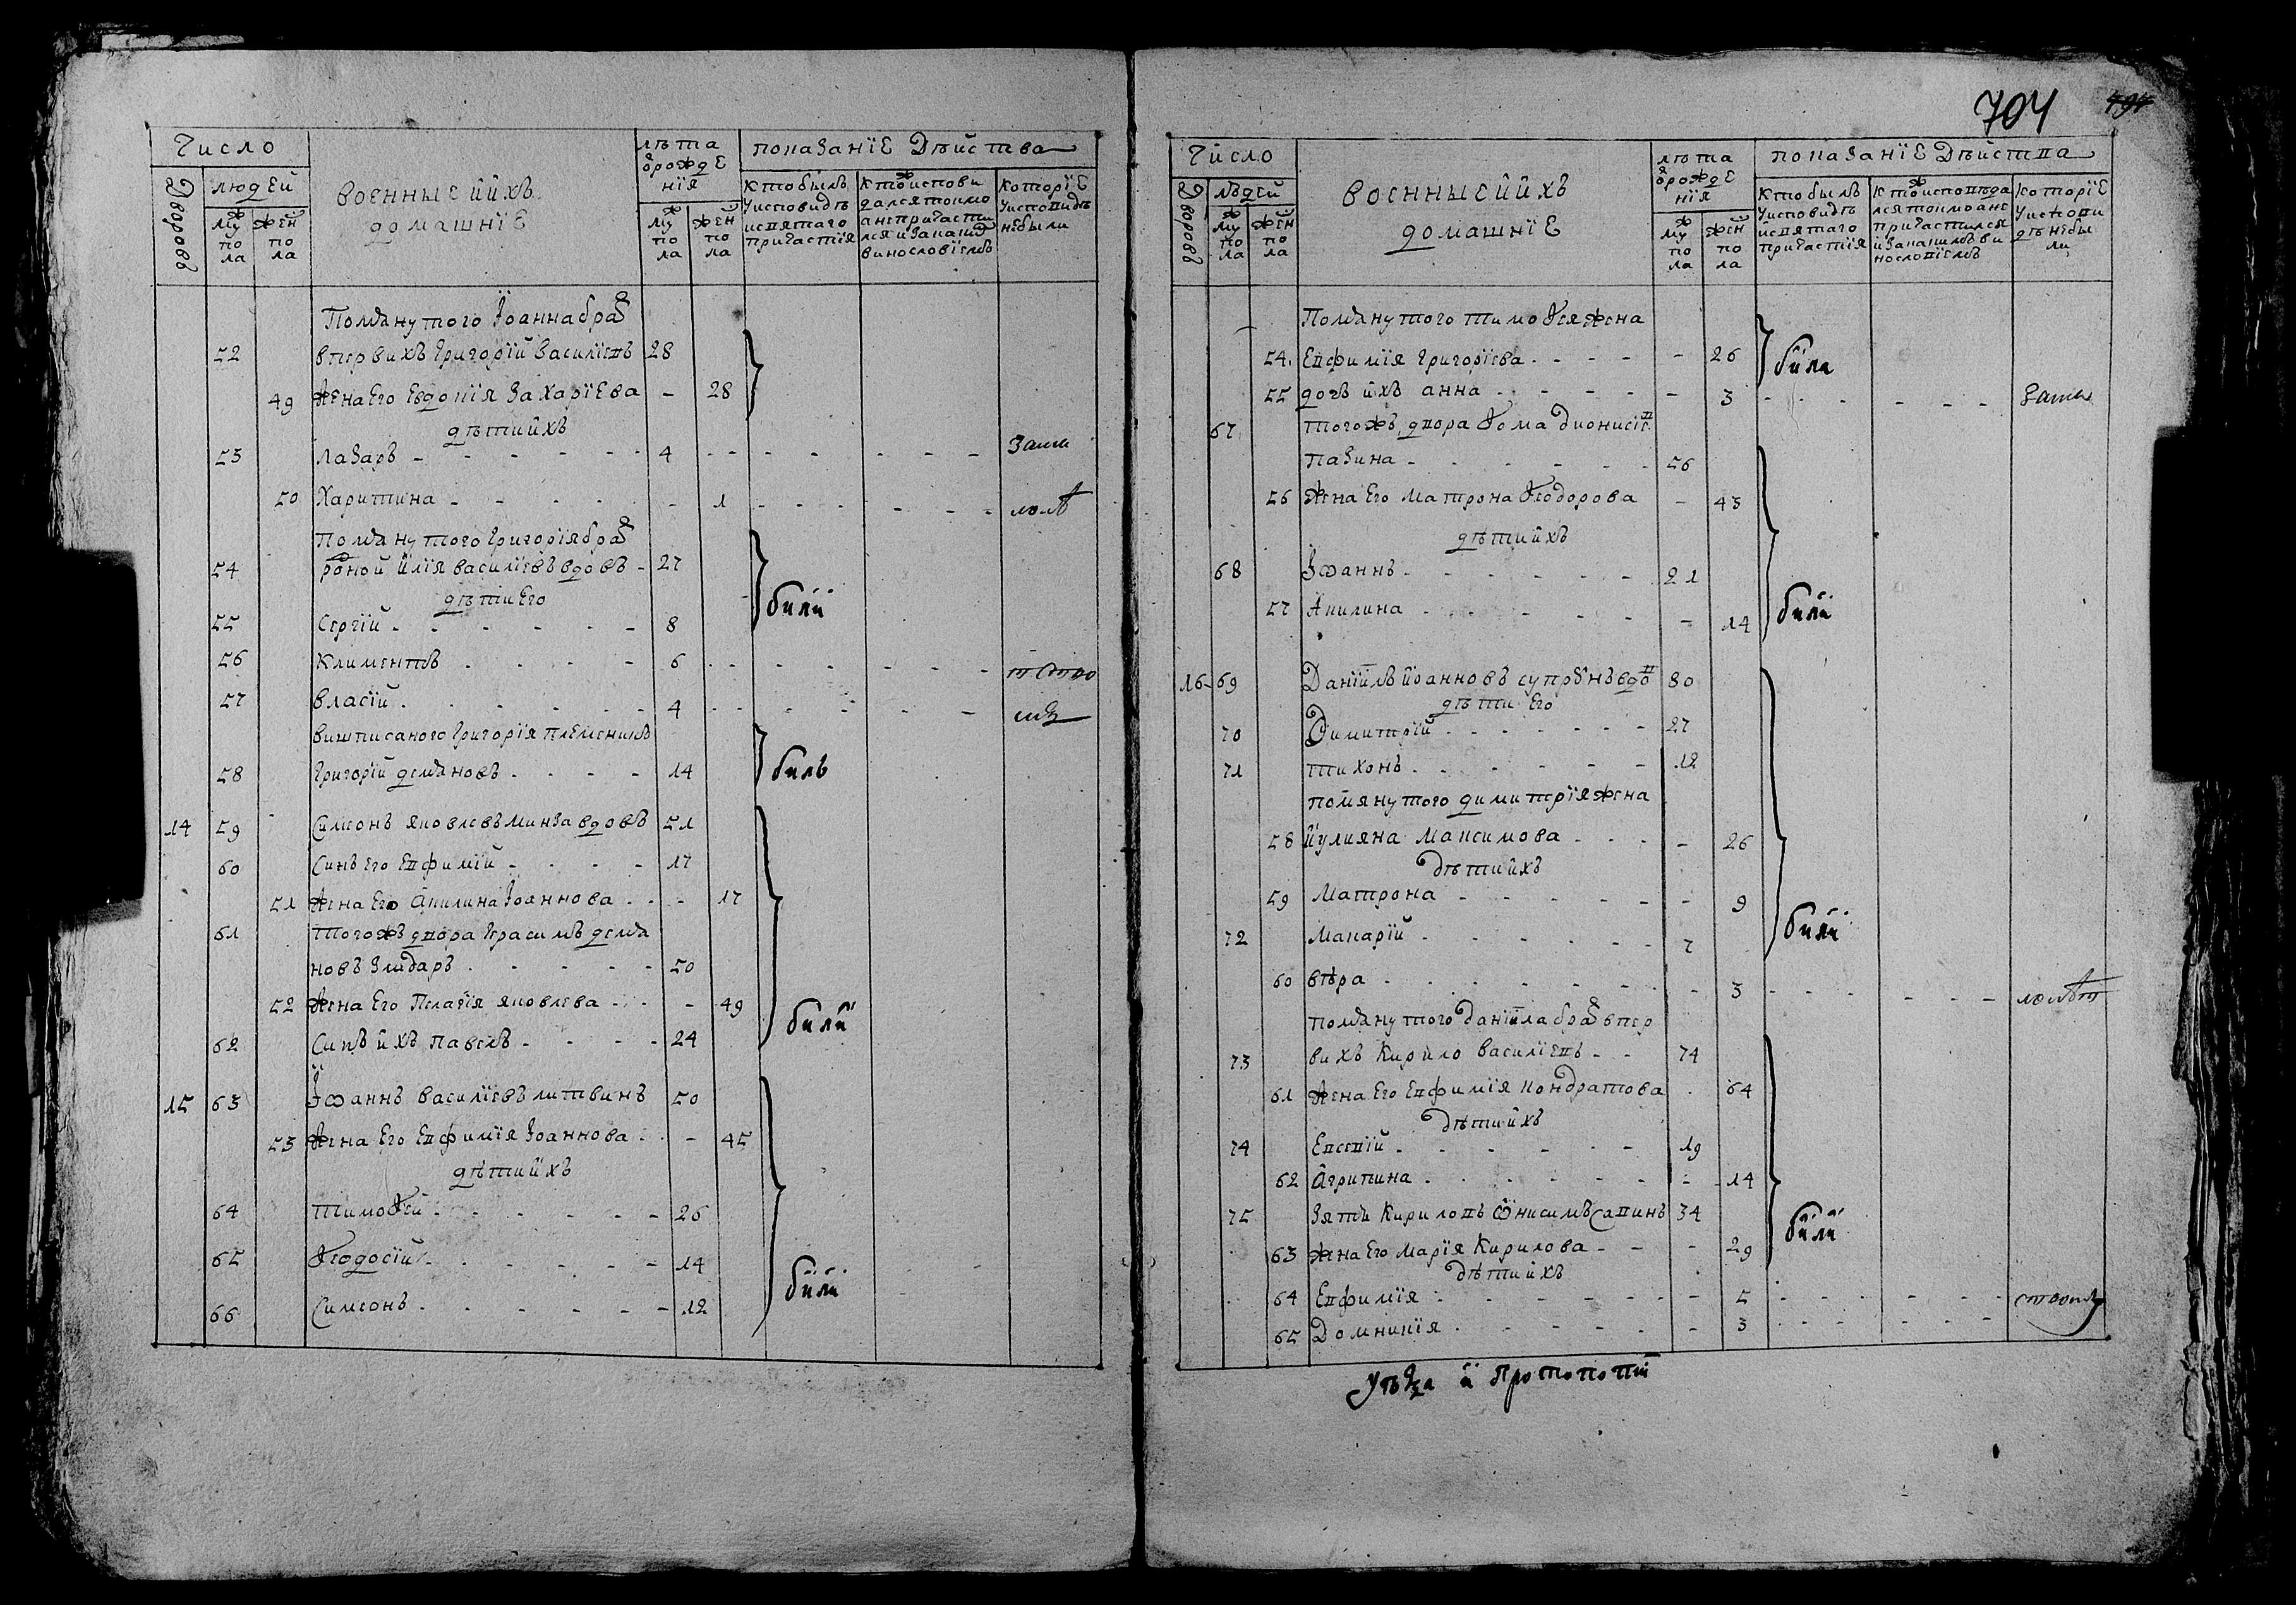 Число
Дворовъ
людей
муж
по
ла
жен
по
ла
военные и ихъ
домашнїе
лѣта
ѿ рожде
нїя
муж
по
ла
жен
по
ла
показанїе Дѣйства
кто былъ
у исповиди
и святаго
причастїя
кто исповѣ
дался токмо
а не причасти
лся и за каким
винословїемъ
которїе
у исповиди
не были
Помянутого Іоанна брат
52 впервихъ Григорїй Василїевъ 28
49 Жена Его Евдокїя Захарїева - 28
дѣти ихъ
53 Лазарь - 4 - за мал
50 Харитина - 1 - лѣт
Помянутого Григорїя брат
54 родной Илїя василїевъ вдовъ - 27
дѣти Его
55 Сергїй - 8
били
56 Климентъ - 6
57 власїй - 4
вишписаного Григорїя племеникъ
58 Григорїй демяновъ - 14 биль
14 59 Симеонъ яковлевъ минза вдовъ 51
60 Синъ Его Евфимїй - 17
51 Жена Его Акилина Іоаннова - 17
61 тогожъ двора Герасимъ демя
новъ Злидарь - 50
52 Жена Его Пелагїя яковлева - 49
били
62 Синъ ихъ павелъ - 24
15 63 Іѡаннъ василїевъ литвинъ 50
53 Жена Его Евфимїя Іоаннова - 45
дѣти ихъ
64 тимоѳей - 26
65 Ѳеодосїй - 14
били
66 Симеонъ - 12
704
Число
Дворовъ
людей
муж
по
ла
жен
по
ла
военные и ихъ
домашнїе
лѣта
ѿ рожде
нїя
муж
по
ла
жен
по
ла
показанїе Дѣйства
кто былъ
у исповидѣ
и святаго
причастїя
кто исповѣда
лся токмо а не
причастился
и за какимъ ви
нословїемъ
которїе
у испови
дѣ не бы
ли
Помянутого тимоѳея жена
54 Евфимїя Григорїева - 26 била
55 дочь ихъ анна - 3 - за мал
67 тогожъ двора Ѳома Дионисїев
Казина - 56
56 Жена Его Матрона Ѳеодорова - 43
дѣти ихъ
68 Іѡаннъ - 21
57 Акилина - 14
били
16 69 Данїилъ Иоанновъ супрунъ вдов 80
дѣти Его
70 Димитрїй - 27
71 тихонъ - 12
помянутого димитерїя жена
58 Иулияна Максимова - 26
дѣти ихъ
59 Матрона - 9
били
72 Макарїй - 7
60 вѣра - 3 - лѣт
помянутого данїила брат впер
73 вихъ Кирило василїевъ - 74
61 Жена Его Евфимїя кондратова - 64
дѣти ихъ
74 Евсевїй - 19
62 Агрипина - 14
75 Зять Кириловъ Ѡнисимъ Сапинъ 34
били
63 Жена Его Марїя Кирилова - 29
дѣти ихъ
64 Евфимїя - 5
65 Домникїя - 3
уѣзда и протопопїи